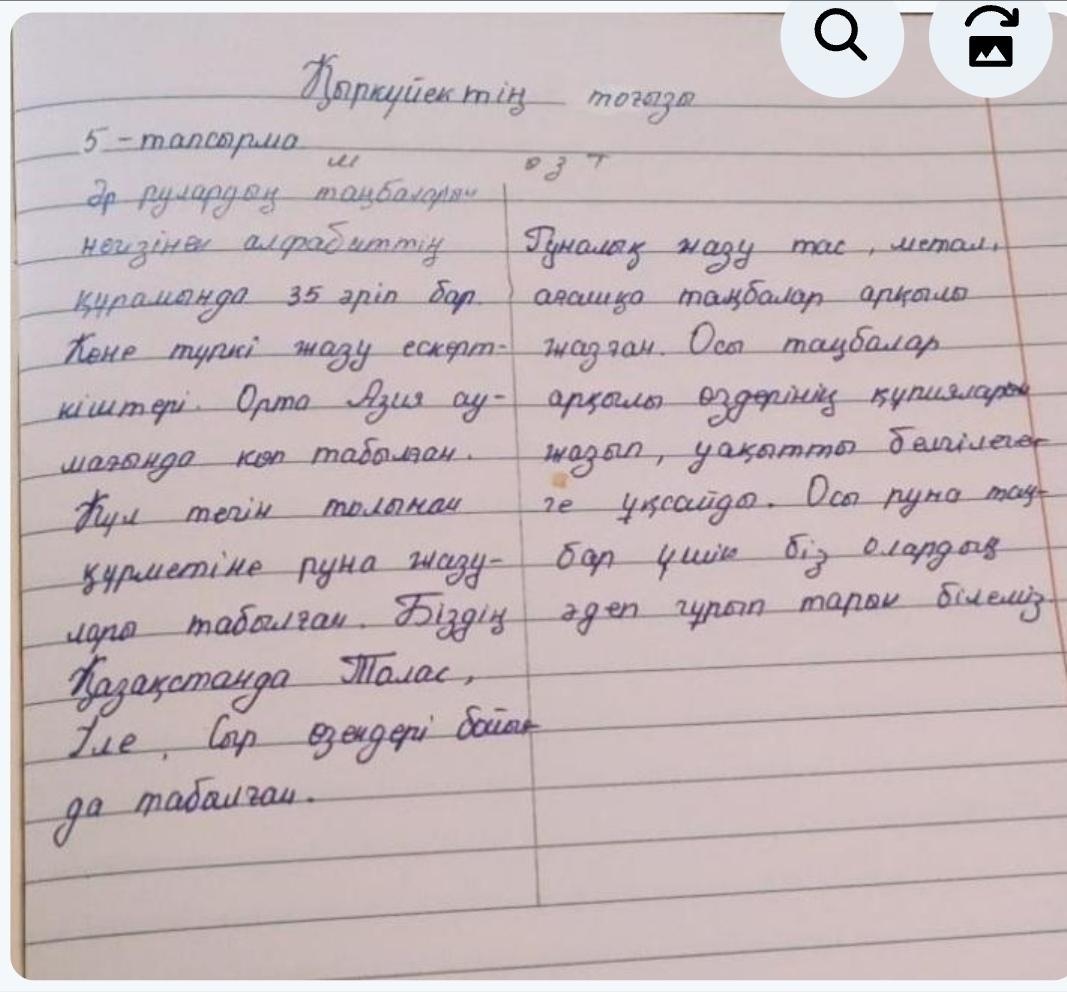 Қыркүйектің тоғызы
5-тапсырма
м
ө з т
Әр рулардың таңбаларын
негізінен алфабиттің
құрамында 35 әріп бар.
Көне түркі жазу ескерт-
кіштері. Орта Азия ау-
мағында көп табылған.
Күл тегін
құрметіне руна жазу-
лары табылған. Біздің
Қазақстанда Талас,
Іле, Сыр өзендері бойын
да табалған.
Руналық жазу тас, метал,
ағашқа таңбалар арқылы
жазған. Осы таңбалар
арқылы өздерінің құпияларын
жазып, уақытты белгілеген
ге ұқсайды. Осы руна таң-
бар үшін біз олардың
әдеп ғұрып тарын білеміз